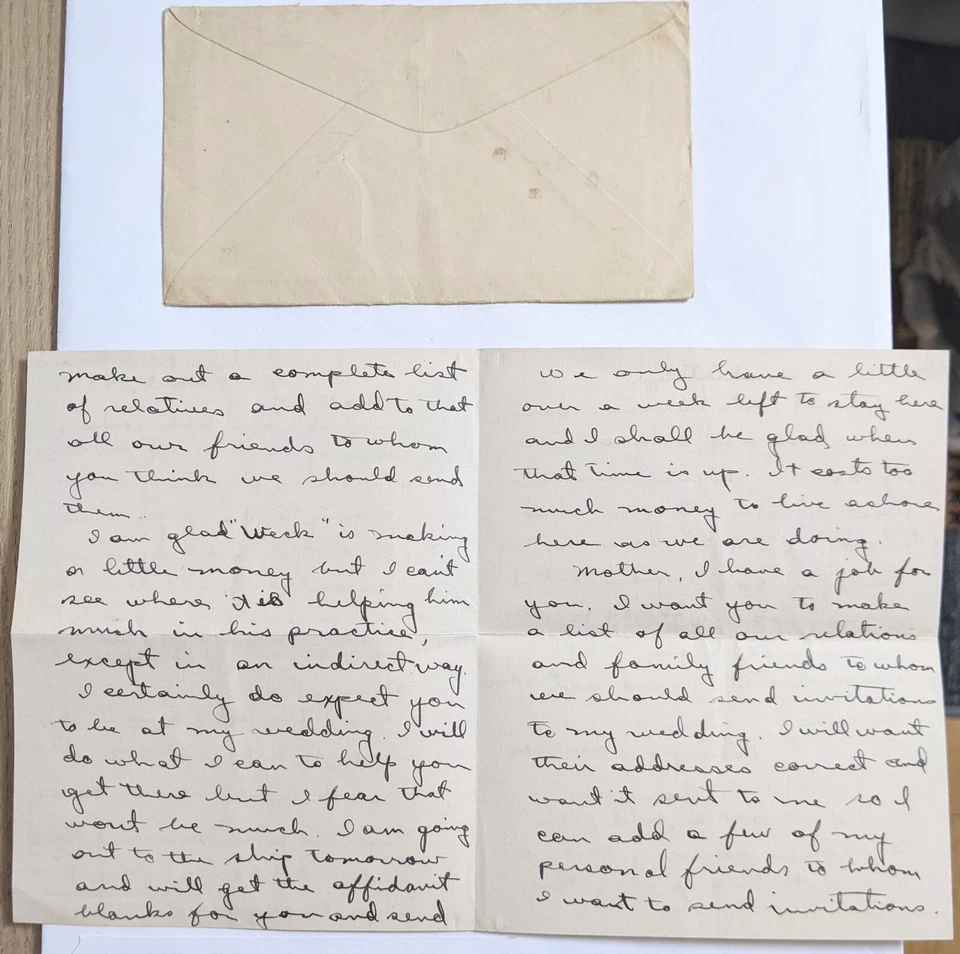 make out a complete list
of relatives and add to that
all our friends to whom
you think we should send
them.
I am glad "Week" is making
a little money but I can't
see where it is helping him
much in his practice,
except in an indirect way.
I certainly do expect you
to be at my wedding. I will
do what I can to help you
get there but I fear that
wont be much. I am going
out to the ship tomorrow
and will get the affidavit
blanks for you and send
we only have a little
over a week left to stay here
and I shall be glad when
that time is up. It costs too
much money to live ashore
here as we are doing.
Mother, I have a job for
you. I want you to make
a list of all our relations
and family friends to whom
we should send invitations
to my wedding. I will want
their addresses correct and
want it sent to me so I
can add a few of my
personal friends to whom
I want to send invitations.